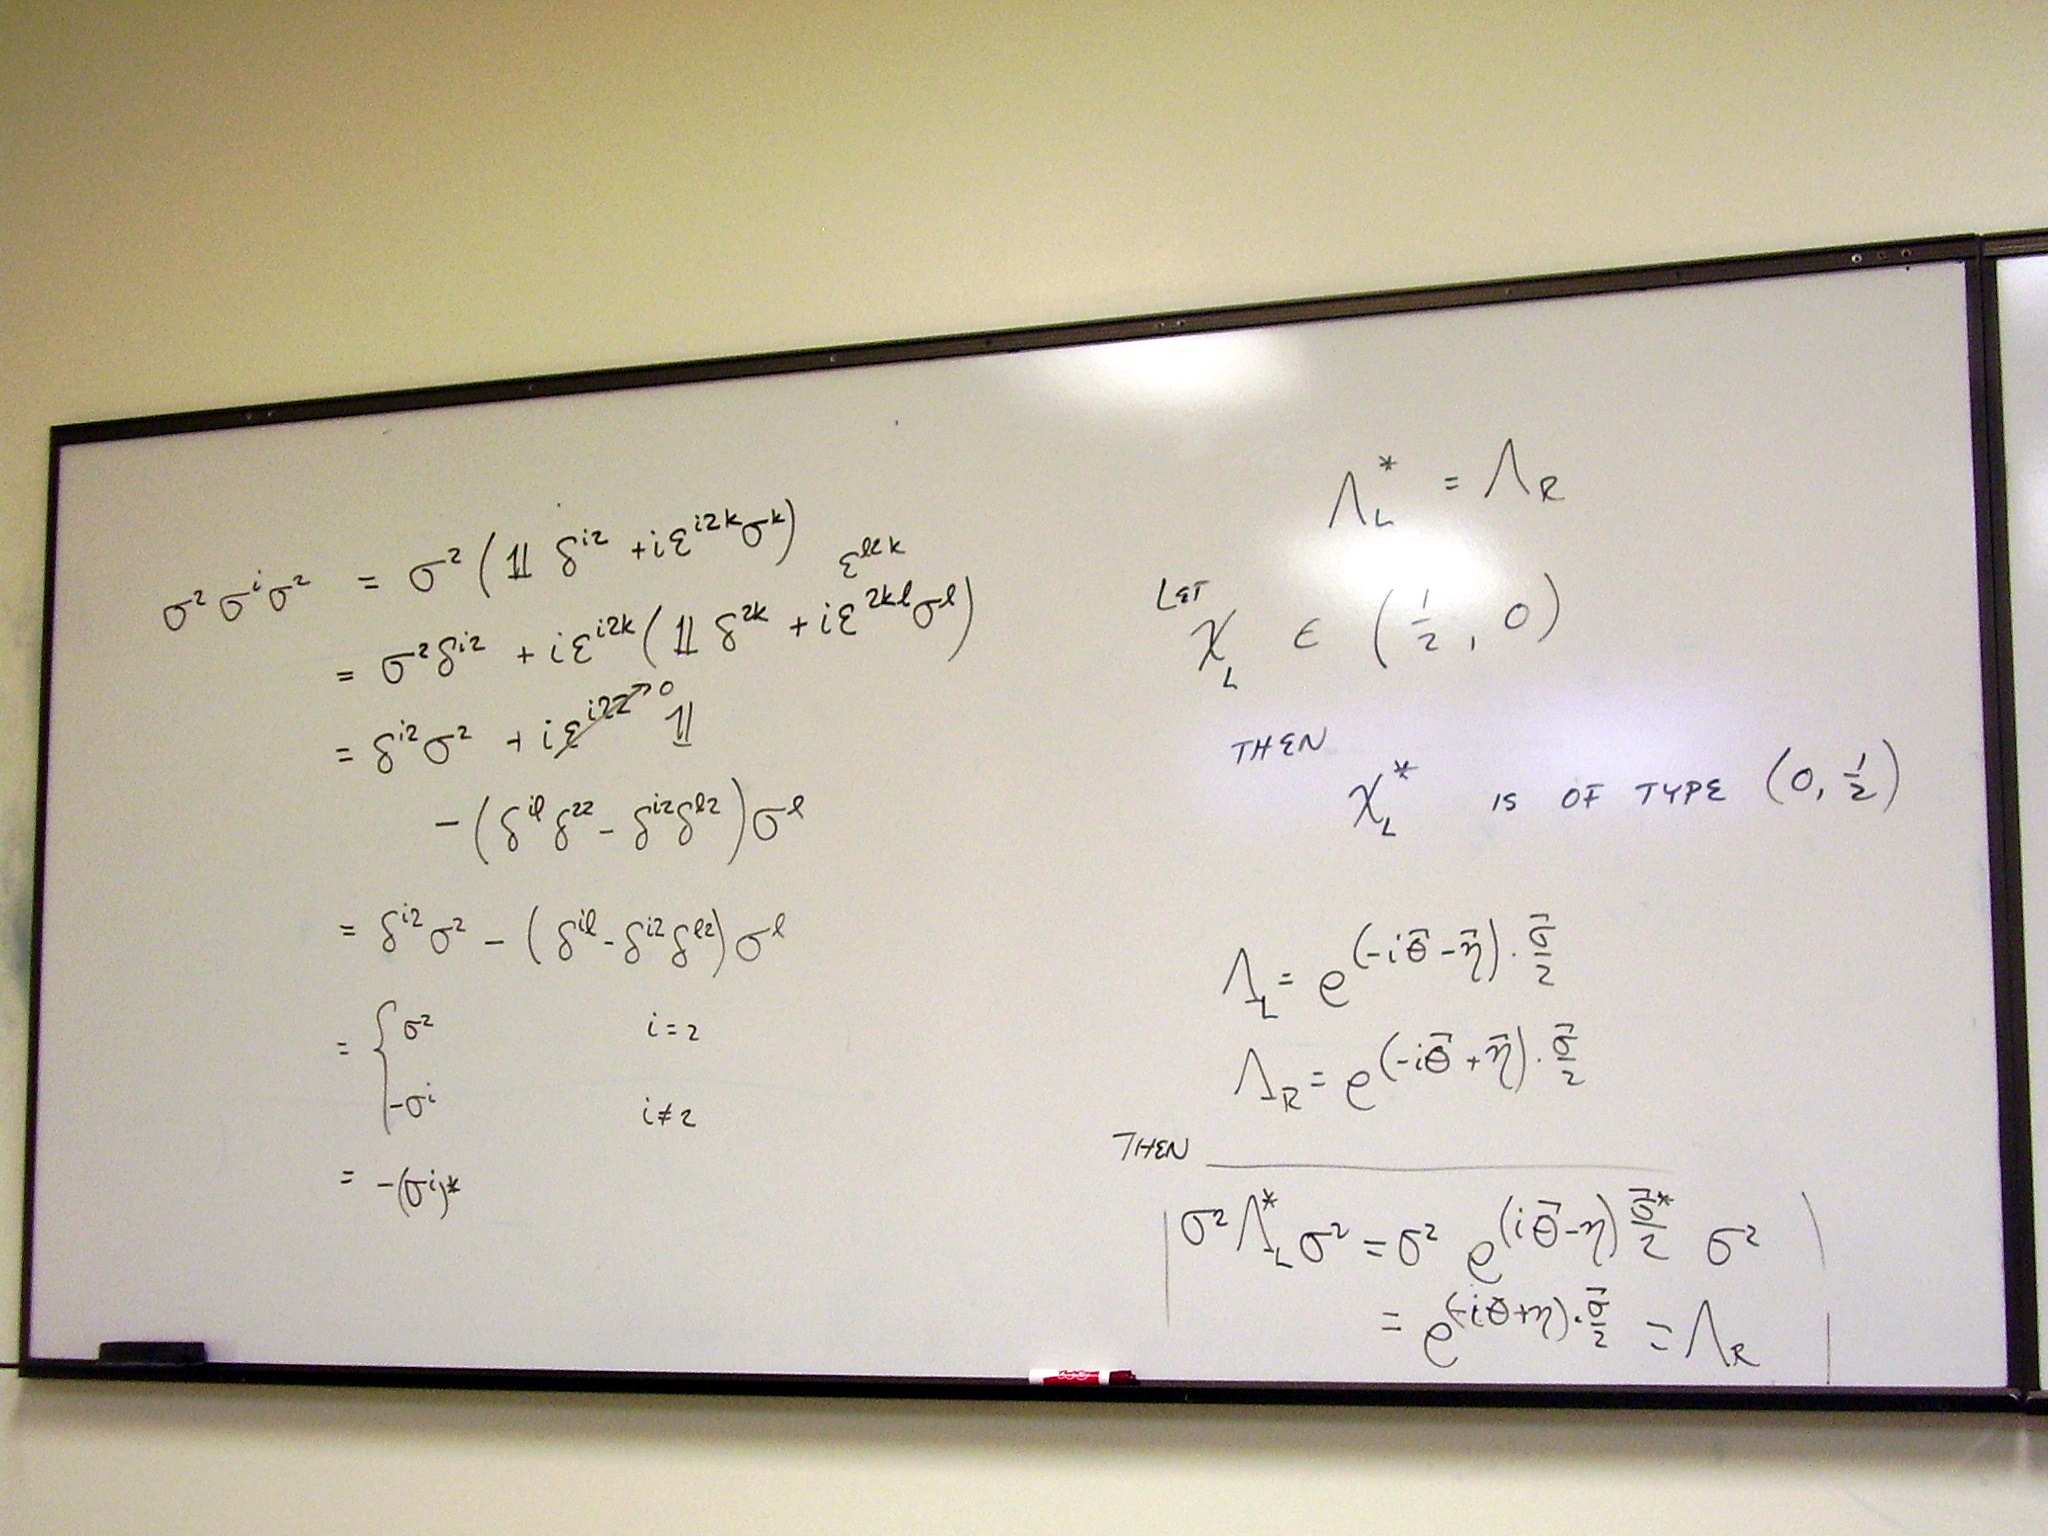 σ² σⁱ σ² = σ² ( 𝟙 δ^{i2} + i ε^{i2k} σ^k )
ε^{l2k}
= σ² δ^{i2} + i ε^{i2k} ( 𝟙 δ^{2k} + i ε^{2kl} σ^l )
= δ^{i2} σ² + i ε^{i22} → 0 𝟙
- ( δ^{il} δ^{22} - δ^{i2} δ^{l2} ) σ^l
= δ^{i2} σ² - ( δ^{il} - δ^{i2} δ^{l2} ) σ^l
= { σ² i = 2
-σⁱ i ≠ 2
= -(σⁱ)*
Λ_L^* = Λ_R
LET
χ_L ∈ ( 1/2 , 0 )
THEN
χ_L^* IS OF TYPE ( 0, 1/2 )
Λ_L = e^{(-i\vec{θ} - \vec{η}) · \vec{σ}/2}
Λ_R = e^{(-i\vec{θ} + \vec{η}) · \vec{σ}/2}
THEN
σ² Λ_L^* σ² = σ² e^{(i\vec{θ} - η) \vec{σ}^*/2} σ²
= e^{(-iθ + η) · \vec{σ}/2} = Λ_R